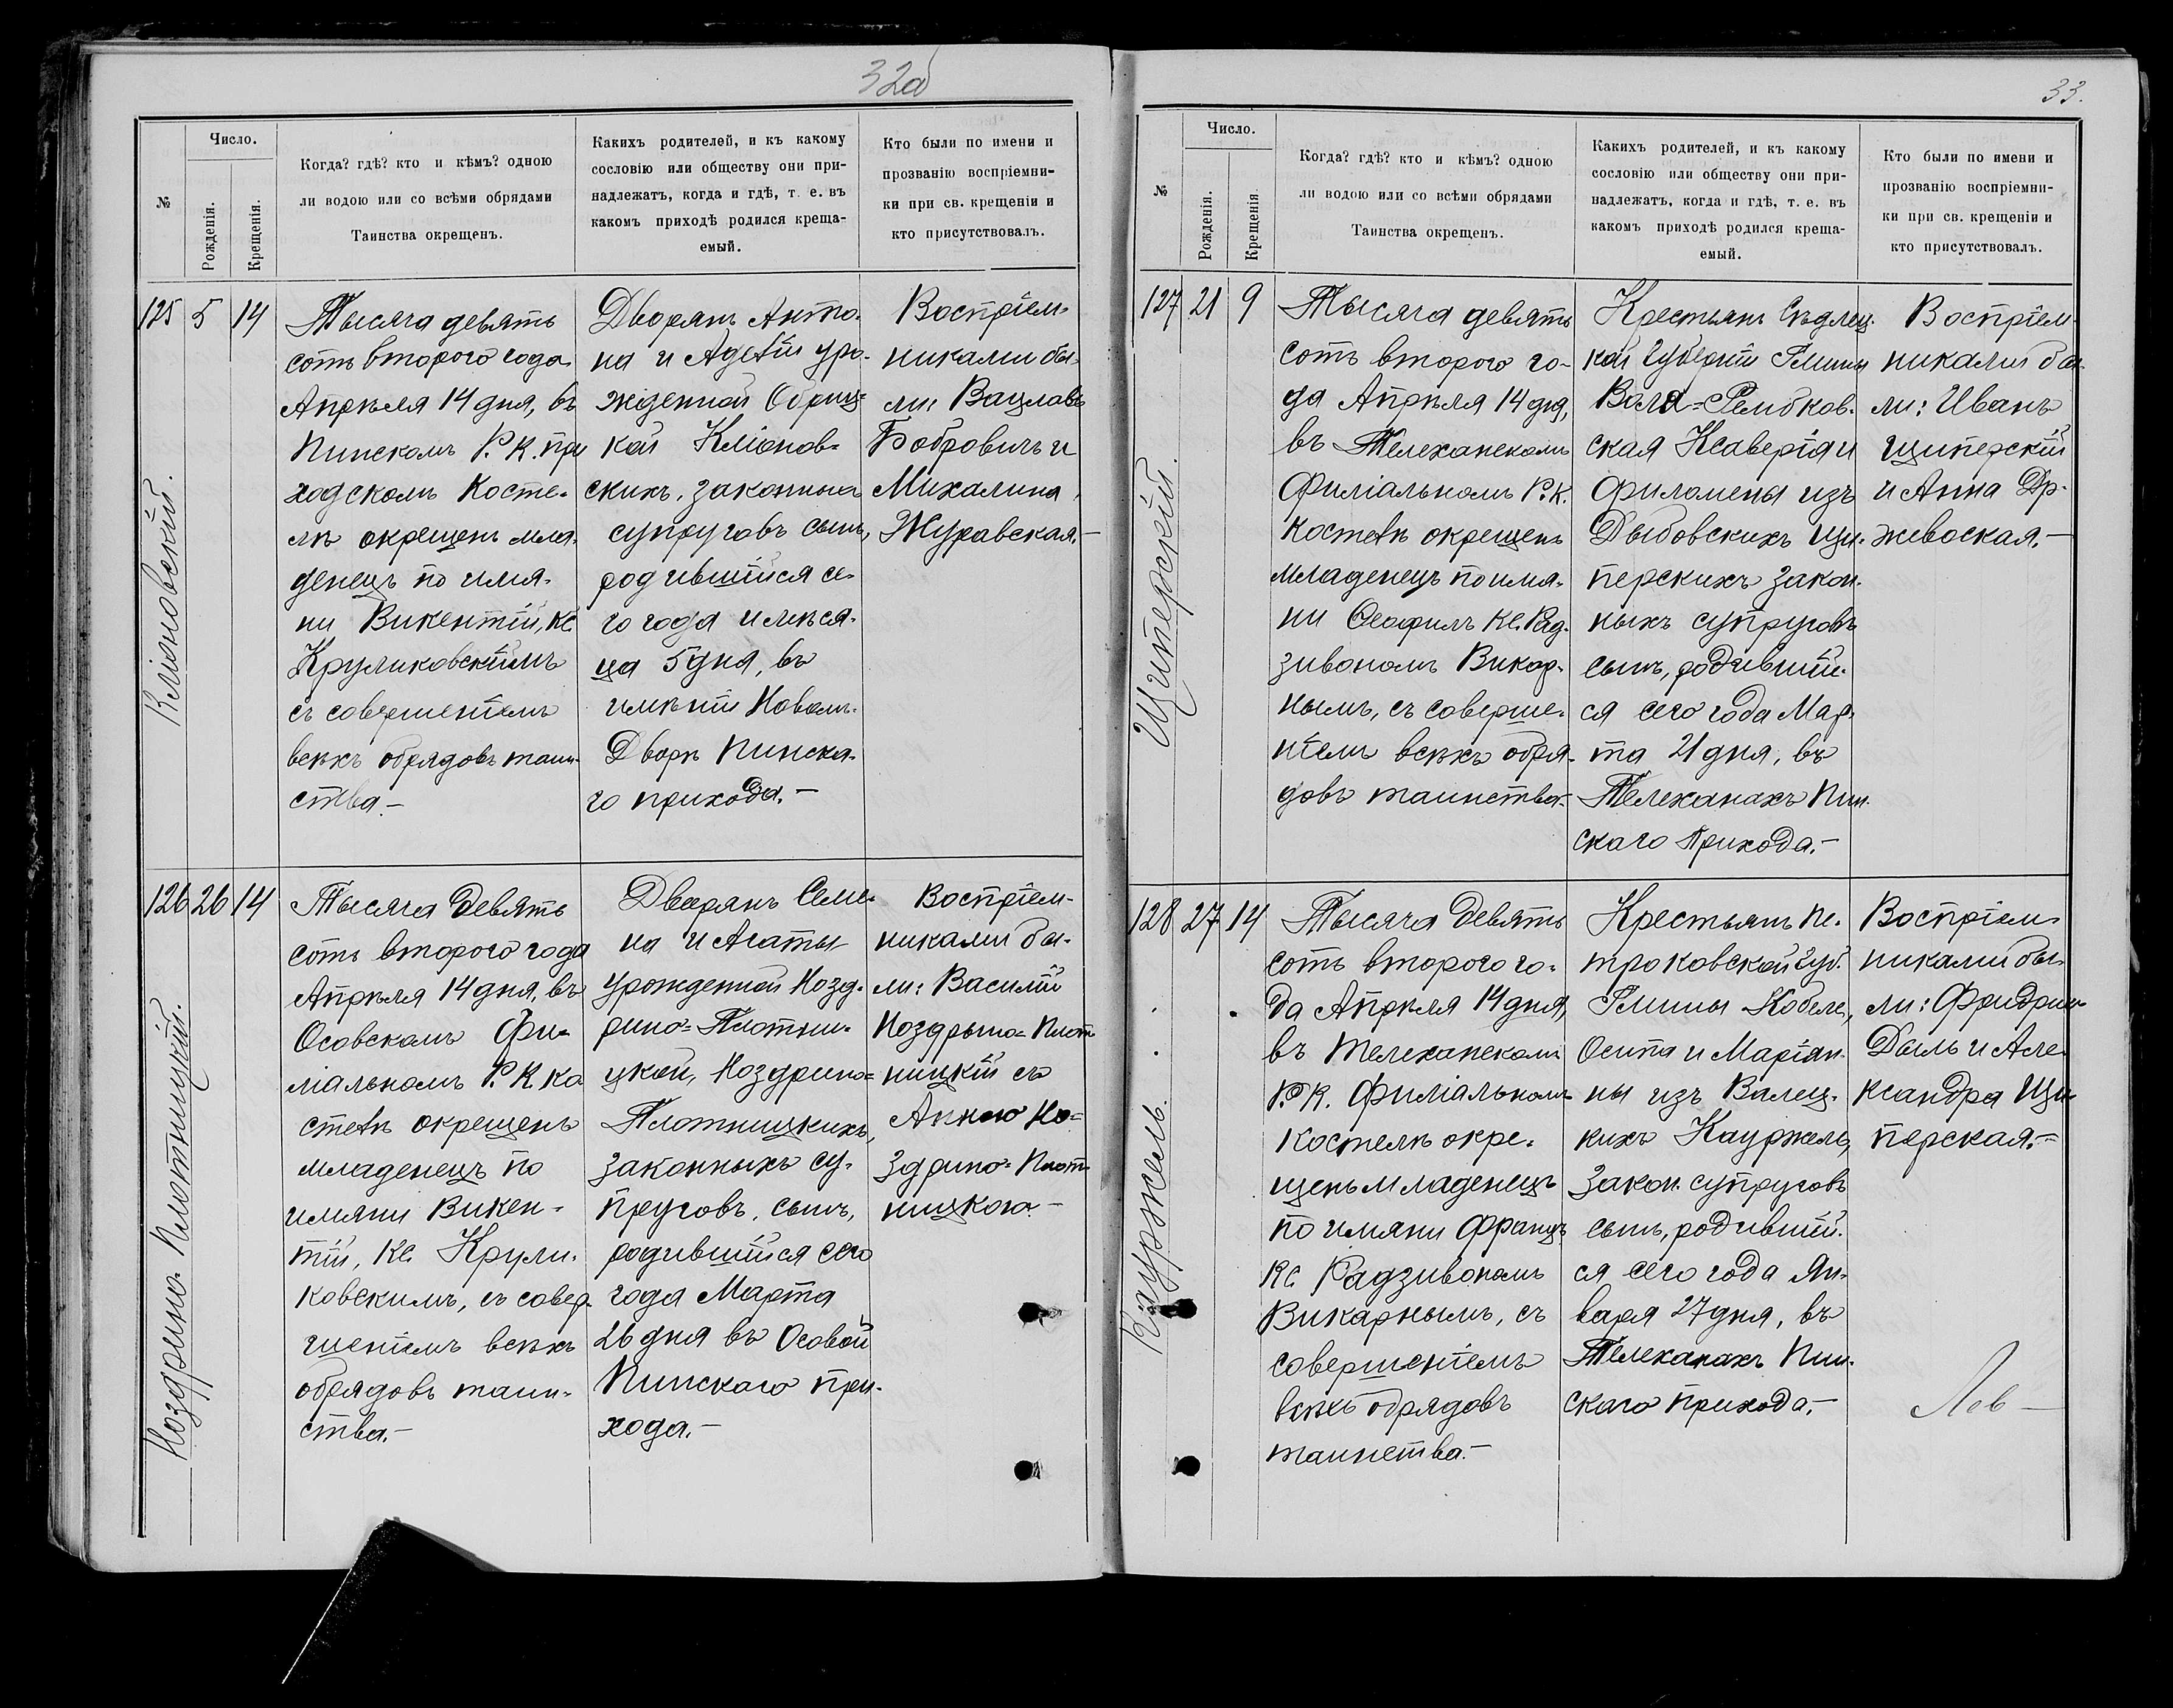 32об
№
Число.
Рожденія.
Крещенія.
Когда? гдѣ? кто и кѣмъ? одною
ли водою или со всѣми обрядами
Таинства окрещенъ.
Какихъ родителей, и къ какому
сословію или обществу они при-
надлежатъ, когда и гдѣ, т. е. въ
какомъ приходѣ родился креща-
емый.
Кто были по имени и
прозванію воспріемни-
ки при св. крещеніи и
кто присутствовалъ.
125 5 14
Кліоновскій.
Тысяча девять
сотъ второго года
Апрѣля 14 дня, въ
Пинскомъ Р. К. при
ходскомъ Косте-
лѣ окрещенъ мла-
денецъ по имя-
ни Викентій, кс.
Круликовскимъ
съ совершеніемъ
всѣхъ обрядовъ таин-
ства.-
Дворянъ Анто-
на и Аделіи уро-
жденной Обриц-
кой Кліонов-
скихъ, законныхъ
супруговъ сынъ,
родившійся се-
го года и мѣся-
ца 5 дня, въ
имѣніи Новомъ-
Дворѣ Пинска-
го прихода.-
Воспріем-
никами бы-
ли: Вацлавъ
Бобровичъ и
Михалина
Журавская.-
126 26 14
Ноздрино-Плотницкій.
Тысяча Девять
сотъ второго года
Апрѣля 14 дня, въ
Осовскомъ Фи-
ліальномъ Р. К. ко
стелѣ окрещенъ
младенецъ по
имяни Викен-
тій, Кс. Крули-
ковскимъ, съ совер-
шеніемъ всѣхъ
обрядовъ таин-
ства.-
Дворянъ Семе-
на и Агаты
урожденной Нозд-
рино-Плотни-
цкой, Ноздрино-
Плотницкихъ,
законныхъ су-
пруговъ, сынъ,
родившійся сего
года Марта
26 дня въ Осовой
Пинскаго при-
хода.-
Воспріем-
никами бы-
ли: Василій
Ноздрыно-Плот
ницкій съ
Анною Но-
здрино-Плот-
ницкою.-
33.
№
Число.
Рожденія.
Крещенія
Когда? гдѣ? кто и кѣмъ? одною
ли водою или со всѣми обрядами
Таинства окрещенъ.
Какихъ родителей, и къ какому
сословію или обществу они при-
надлежатъ, когда и гдѣ, т. е. въ
какомъ приходѣ родился креща-
емый.
Кто были по имени и
прозванію воспріемни-
ки при св. крещеніи и
кто присутствовалъ.
127 21 9
Щиперскій.
Тысяча девять
сотъ второго го-
да Апрѣля 14 дня,
въ Телеханскомъ
Филіальномъ Р. К.
Костелѣ окрещенъ
младенецъ по имя-
ни Ѳеофилъ Кс. Рад-
зивономъ Викар-
нымъ, съ соверше-
ніемъ всѣхъ обря-
довъ таинства.-
Крестьянъ Сѣдлец-
кой Губерніи Гмины
Воля-Рембков-
ская Ксаверія и
Филомены изъ
Дыбовскихъ Щи-
перскихъ закон-
ныхъ супруговъ
сынъ, родившій-
ся сего года Мар-
та 21 дня, въ
Телеханахъ Пин-
скаго Прихода.-
Воспріем-
никами бы-
ли: Иванъ
Щиперскій
и Анна Др-
жевоская.-
128 27 14
Кауржель.
Тысяча Девять
сотъ второго го-
да Апрѣля 14 дня,
въ Телеханскомъ
Р. К. Филіальномъ
Костелѣ окре-
щенъ младенецъ
по имяни Францъ
Кс. Радзивономъ
Викарнымъ, съ
совершеніемъ
всѣхъ обрядовъ
таинства.-
Крестьянъ Пе-
троковской губ.
Гмины Кобеле,
Осипа и Маріан-
ны изъ Валец-
кихъ Кауржель,
Закон. супруговъ
сынъ, родившій-
ся сего года Ян-
варя 27 дня, въ
Телеханахъ Пин-
скаго прихода.-
Воспріем-
никами бы-
ли: Фридрих
Дыль и Але-
ксандра Щи-
перская.-